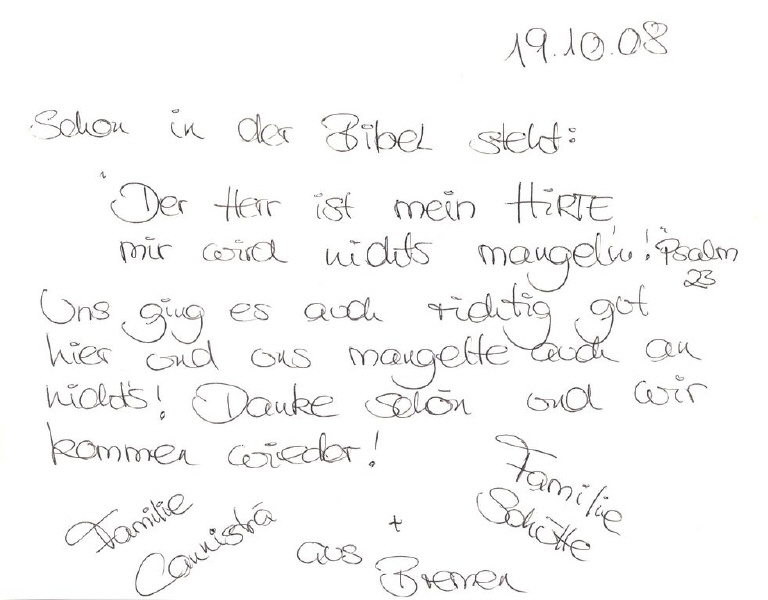 19.10.08
Schon in der Bibel steht:
"Der Herr ist mein HIRTE
mir wird nichts mangeln!" Psalm
23
Uns ging es auch richtig gut
hier und uns mangelte auch an
nichts! Danke schön und wir
kommen wieder!
Familie
Cannistrá
+
Familie
Schütte
aus Bremen